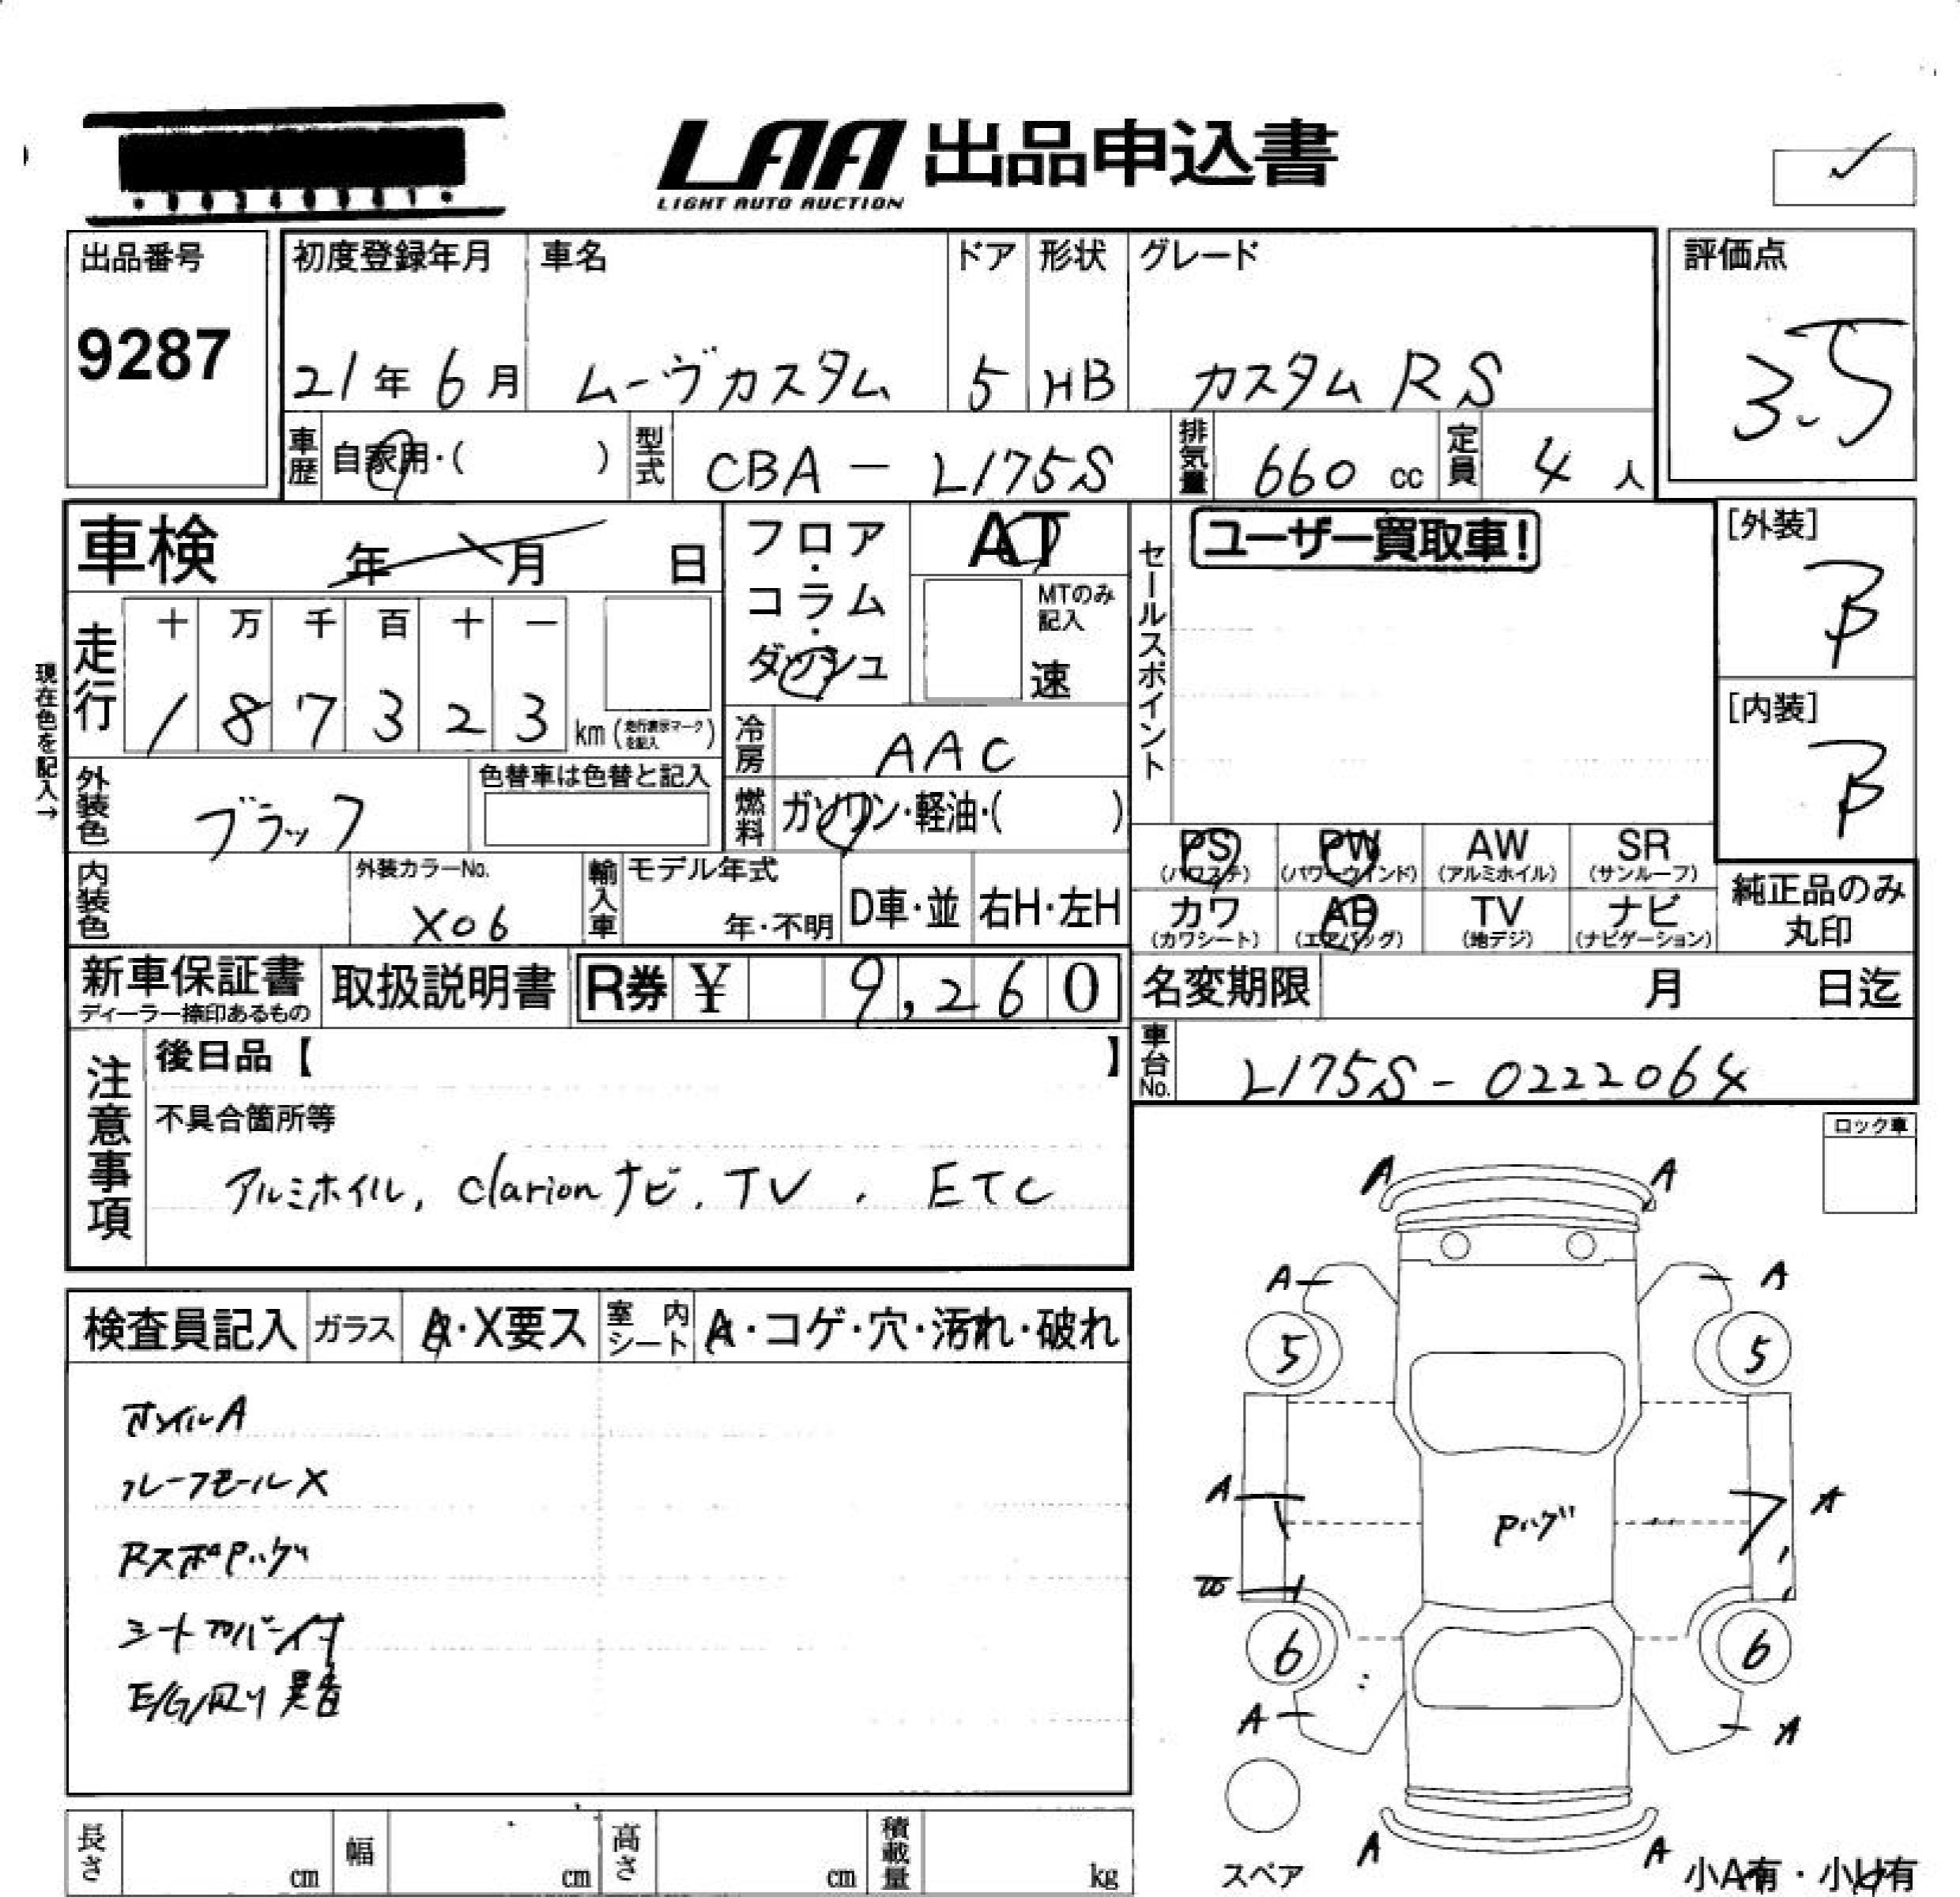 LAA 出品申込書
LIGHT AUTO AUCTION
出品番号
9287
初度登録年月
21年6月
車名
ムーヴカスタム
ドア
5
形状
HB
グレード
カスタム RS
評価点
3.5
車歴 自家用・( )
型式 CBA - L175S
排気量 660 cc
定員 4 人
車検 年 月 日
フロア・コラム・ダッシュ
AT
MTのみ記入
速
セールスポイント
ユーザー買取車!
[外装]
B
[内装]
B
現在色を記入→
走行
十 万 千 百 十 一
1 8 7 3 2 3 km (走行表示マークを記入)
冷房 AAC
外装色 ブラック
色替車は色替と記入
燃料 ガソリン・軽油・( )
内装色
外装カラーNo.
X06
輸入車
モデル年式
年・不明
D車・並
右H・左H
PS (パワステ)
PW (パワーウインド)
AW (アルミホイル)
SR (サンルーフ)
カワ (カワシート)
AB (エアバッグ)
TV (地デジ)
ナビ (ナビゲーション)
純正品のみ丸印
新車保証書
ディーラー捺印あるもの
取扱説明書
R券 ¥ 9,260
名変期限 月 日迄
車台No. L175S - 0222064
注意事項
後日品【 】
不具合箇所等
アルミホイル, clarionナビ, TV, ETC
ロック車
検査員記入
ガラス A・X要ス
室内シート A・コゲ・穴・汚れ・破れ
ホイルA
ルーフモールX
RスポPハゲ
シートカバー付
A A
A A
5 5
A A
Pハゲ
6 6
A A
A A
スペア
小A有・小U有
長さ cm
幅 cm
高さ cm
積載量 kg